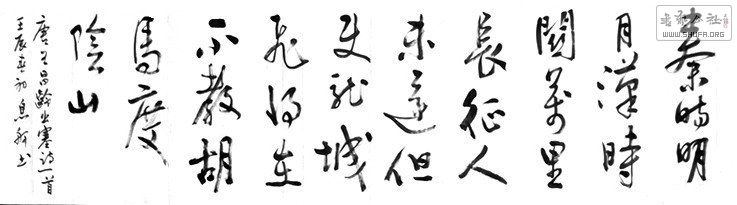 秦時明
月漢時
關萬里
長征人
未還但
使龍城
飛將在
不教胡
馬度
陰山
唐王昌齡出塞詩一首
壬辰春初息書
WWW.SHUFA.ORG